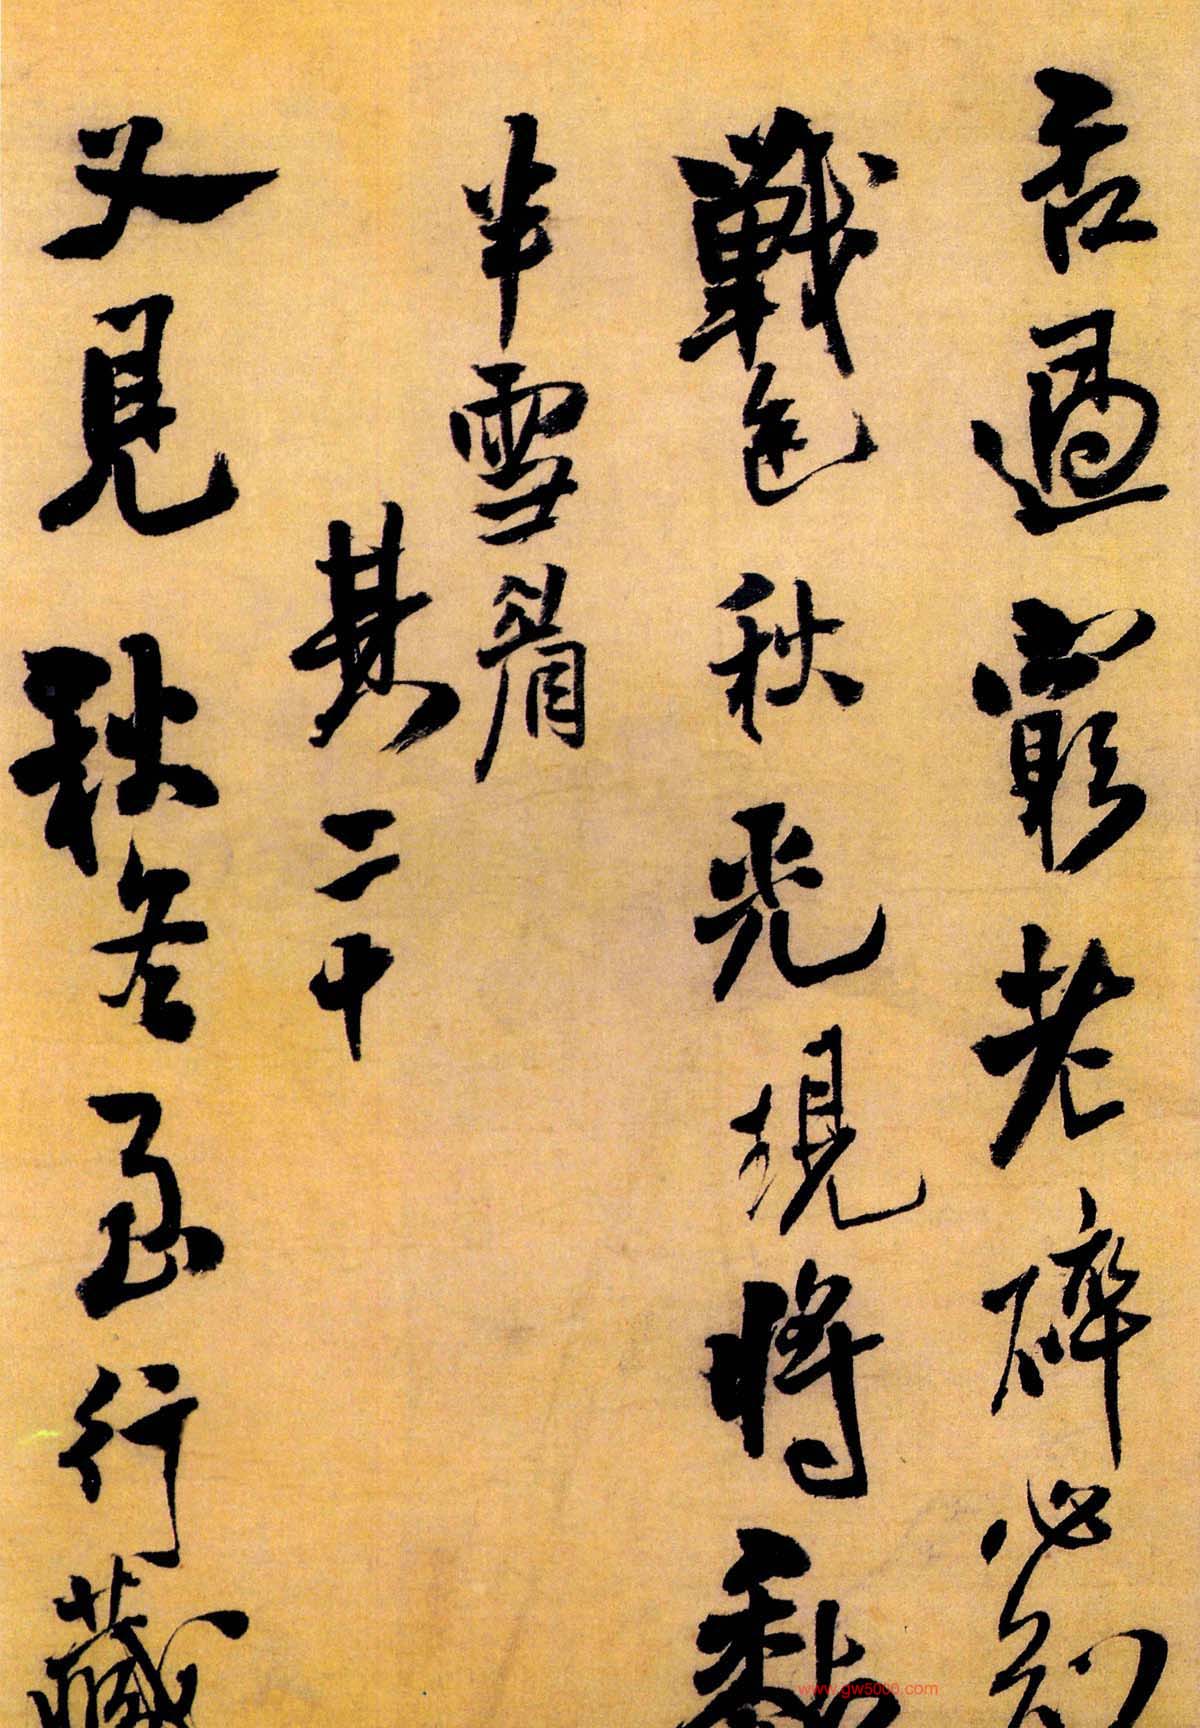 舌過寡老醉必別
戰色秋光規將黏
半雪眉
其二十
又見秋冬至行藏
www.gw5000.com